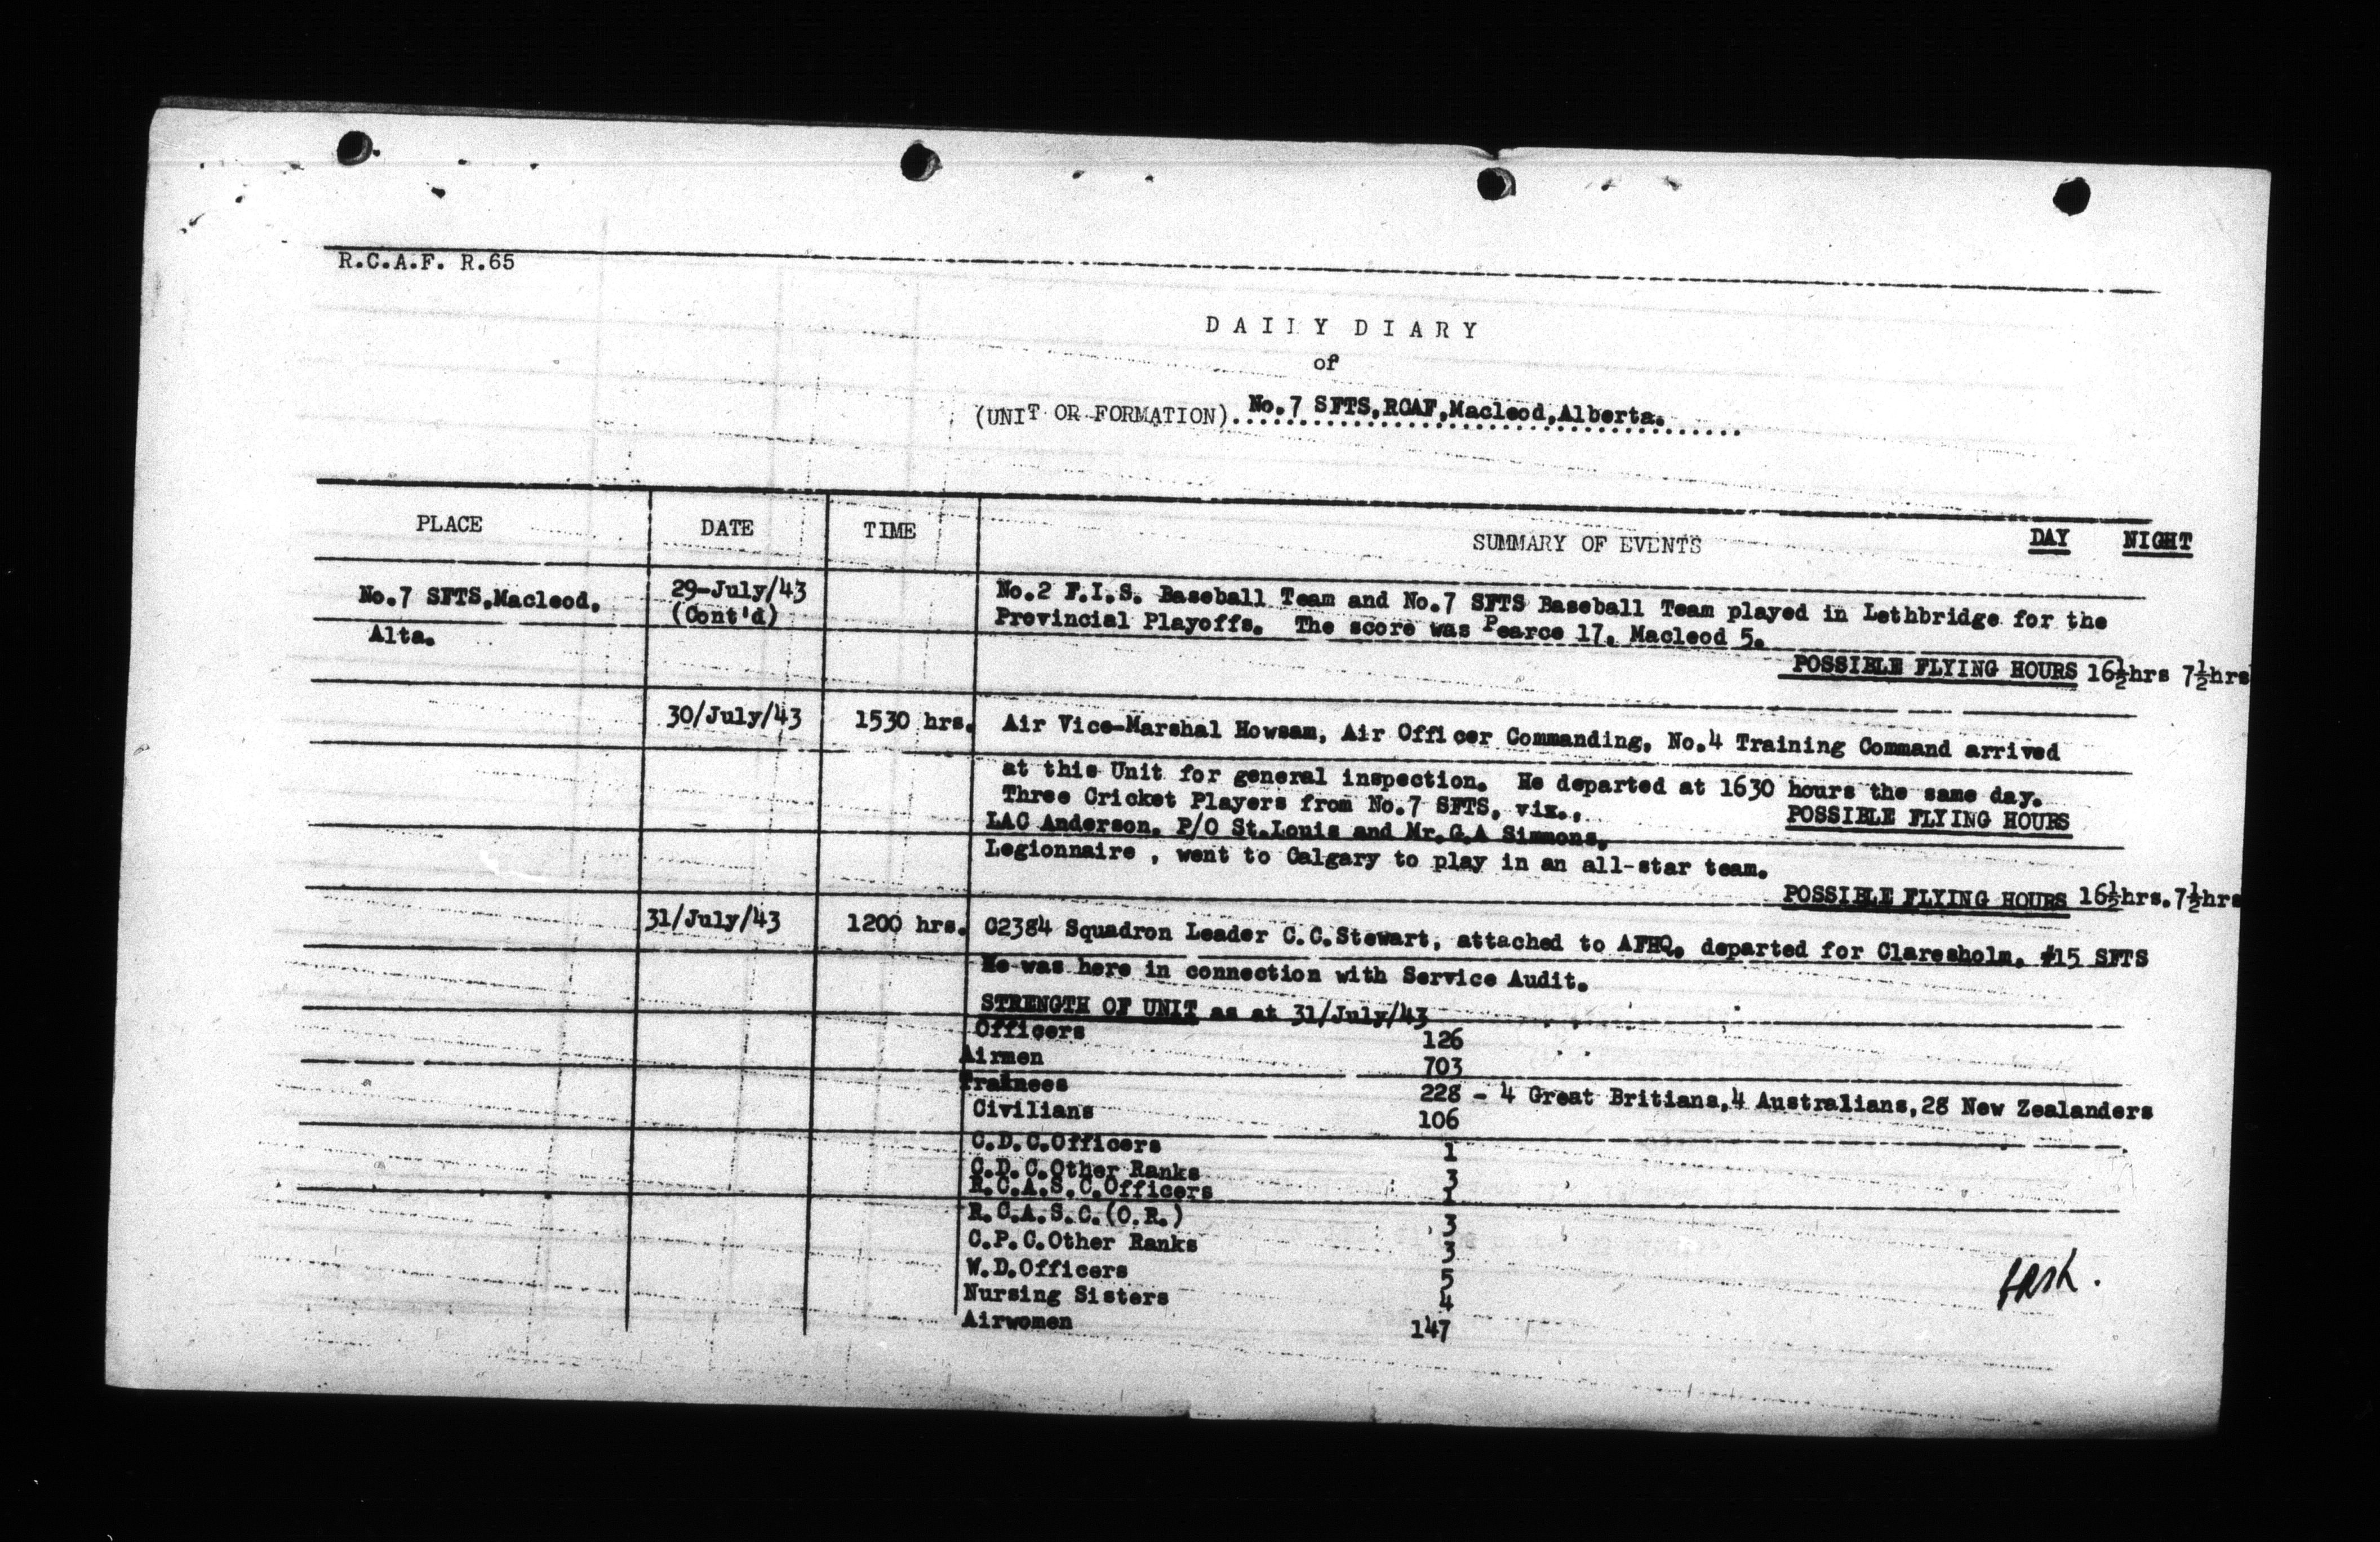 R.C.A.F. R.65
DAILY DIARY
of
(UNIT OR FORMATION)..No.7 SFTS,RCAF,Macleod,Alberta.......
PLACE DATE TIME SUMMARY OF EVENTS DAY NIGHT
No.7 SFTS,Macleod, 29-July/43 No.2 F.I.S. Baseball Team and No.7 SFTS Baseball Team played in Lethbridge for the
Alta. (Cont'd) Provincial Playoffs. The score was Pearce 17. Macleod 5.
POSSIBLE FLYING HOURS 16½hrs 7½hrs
30/July/43 1530 hrs. Air Vice-Marshal Howsam, Air Officer Commanding, No.4 Training Command arrived
at this Unit for general inspection. He departed at 1630 hours the same day.
Three Cricket Players from No.7 SFTS, viz., POSSIBLE FLYING HOURS
LAC Anderson, P/O St.Louis and Mr.G.A Simmons,
Legionnaire , went to Calgary to play in an all-star team.
POSSIBLE FLYING HOURS 16½hrs. 7½hrs
31/July/43 1200 hrs. C2384 Squadron Leader C.C.Stewart, attached to AFHQ, departed for Claresholm, #15 SFTS
He was here in connection with Service Audit.
STRENGTH OF UNIT as at 31/July/43
Officers 126
Airmen 703
Trainees 228 - 4 Great Britians,4 Australians,28 New Zealanders
Civilians 106
C.D.C.Officers 1
C.D.C.Other Ranks 3
R.C.A.S.C.Officers 1
R.C.A.S.C.(O.R.) 3
C.P.C.Other Ranks 3
W.D.Officers 5
Nursing Sisters 4
Airwomen 147